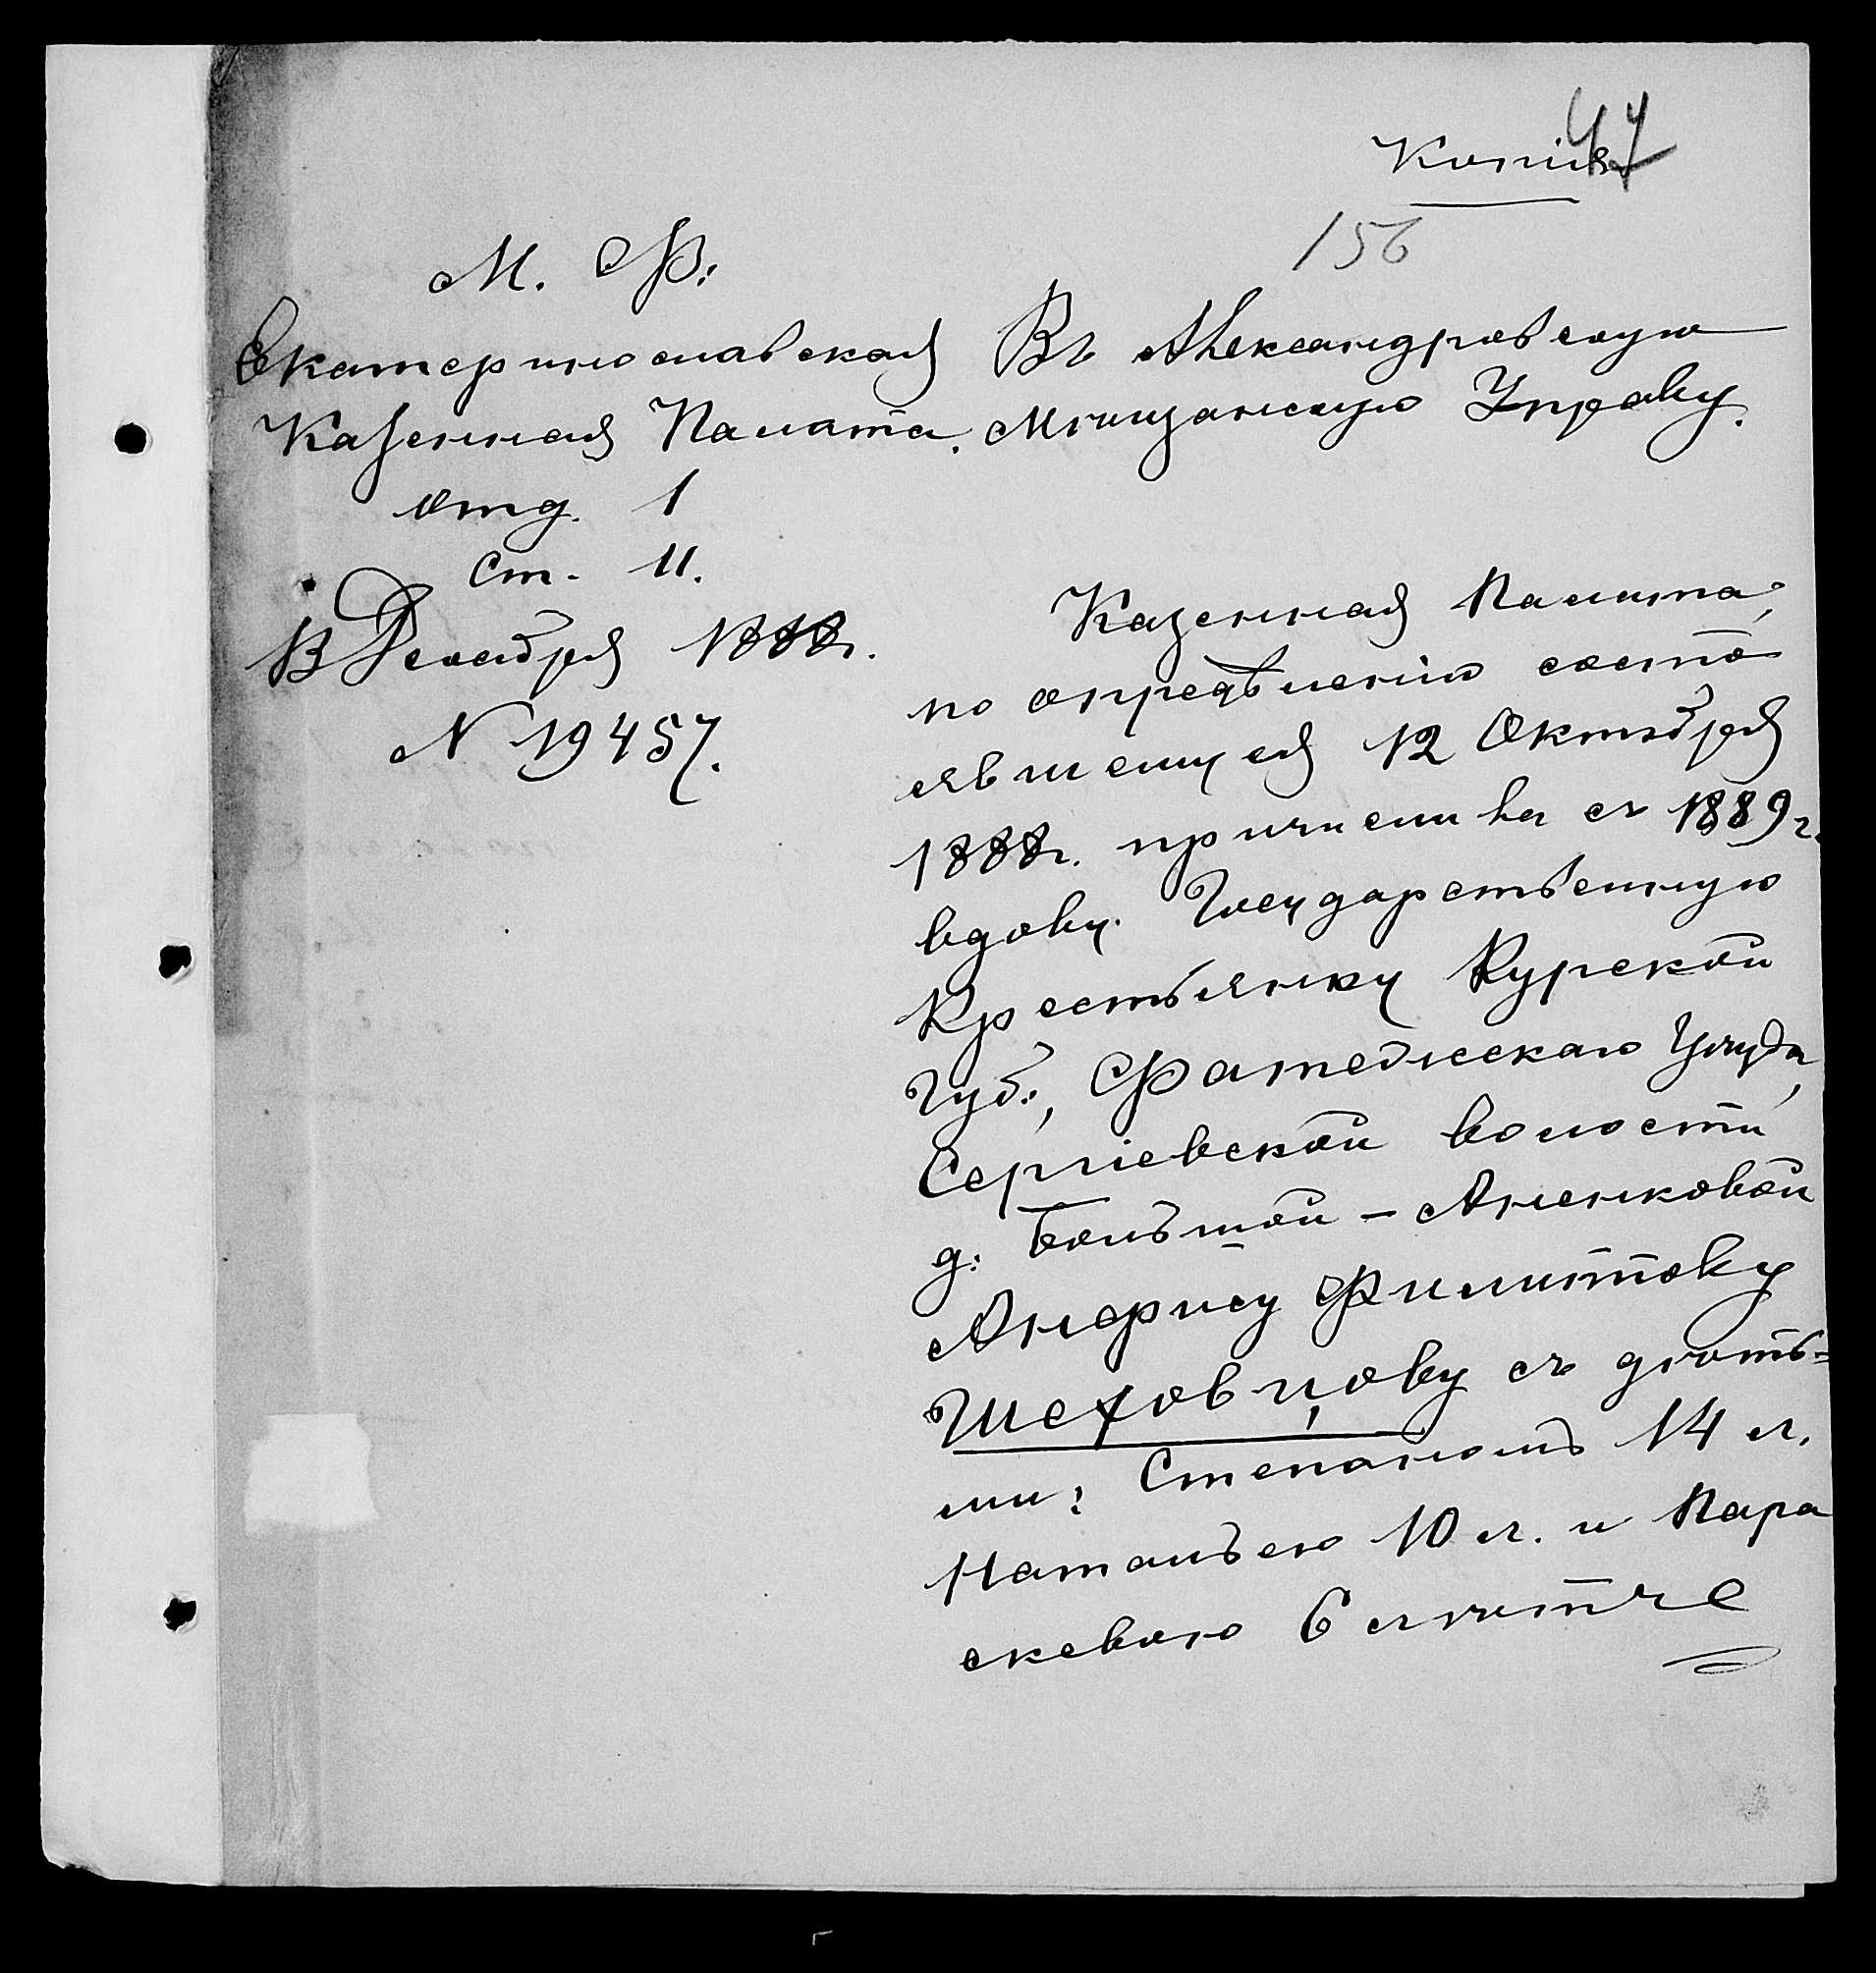 Копія
47
156
М. Ф.
Екатеринославская
Казенная Палата.
Отд. 1
Ст. 11.
Декабря 1888г.
N 19457.
Въ Александровскую
Мѣщанскую Управу.
Казенная Палата,
по опредѣленію состо
явшемуся 12 Октября
1888г. причислила съ 1889г.
вдову Государственную
Крестьянку Курской
Губ., Фатежскаго Уѣзда,
Сергіевской волости
д. Большой-Аненковой
Анфису Филипову
Шеховцову съ дѣть=
ми: Степаномъ 14 л.
Натальею 10 л. и Пара
скевою 6 лѣтъ